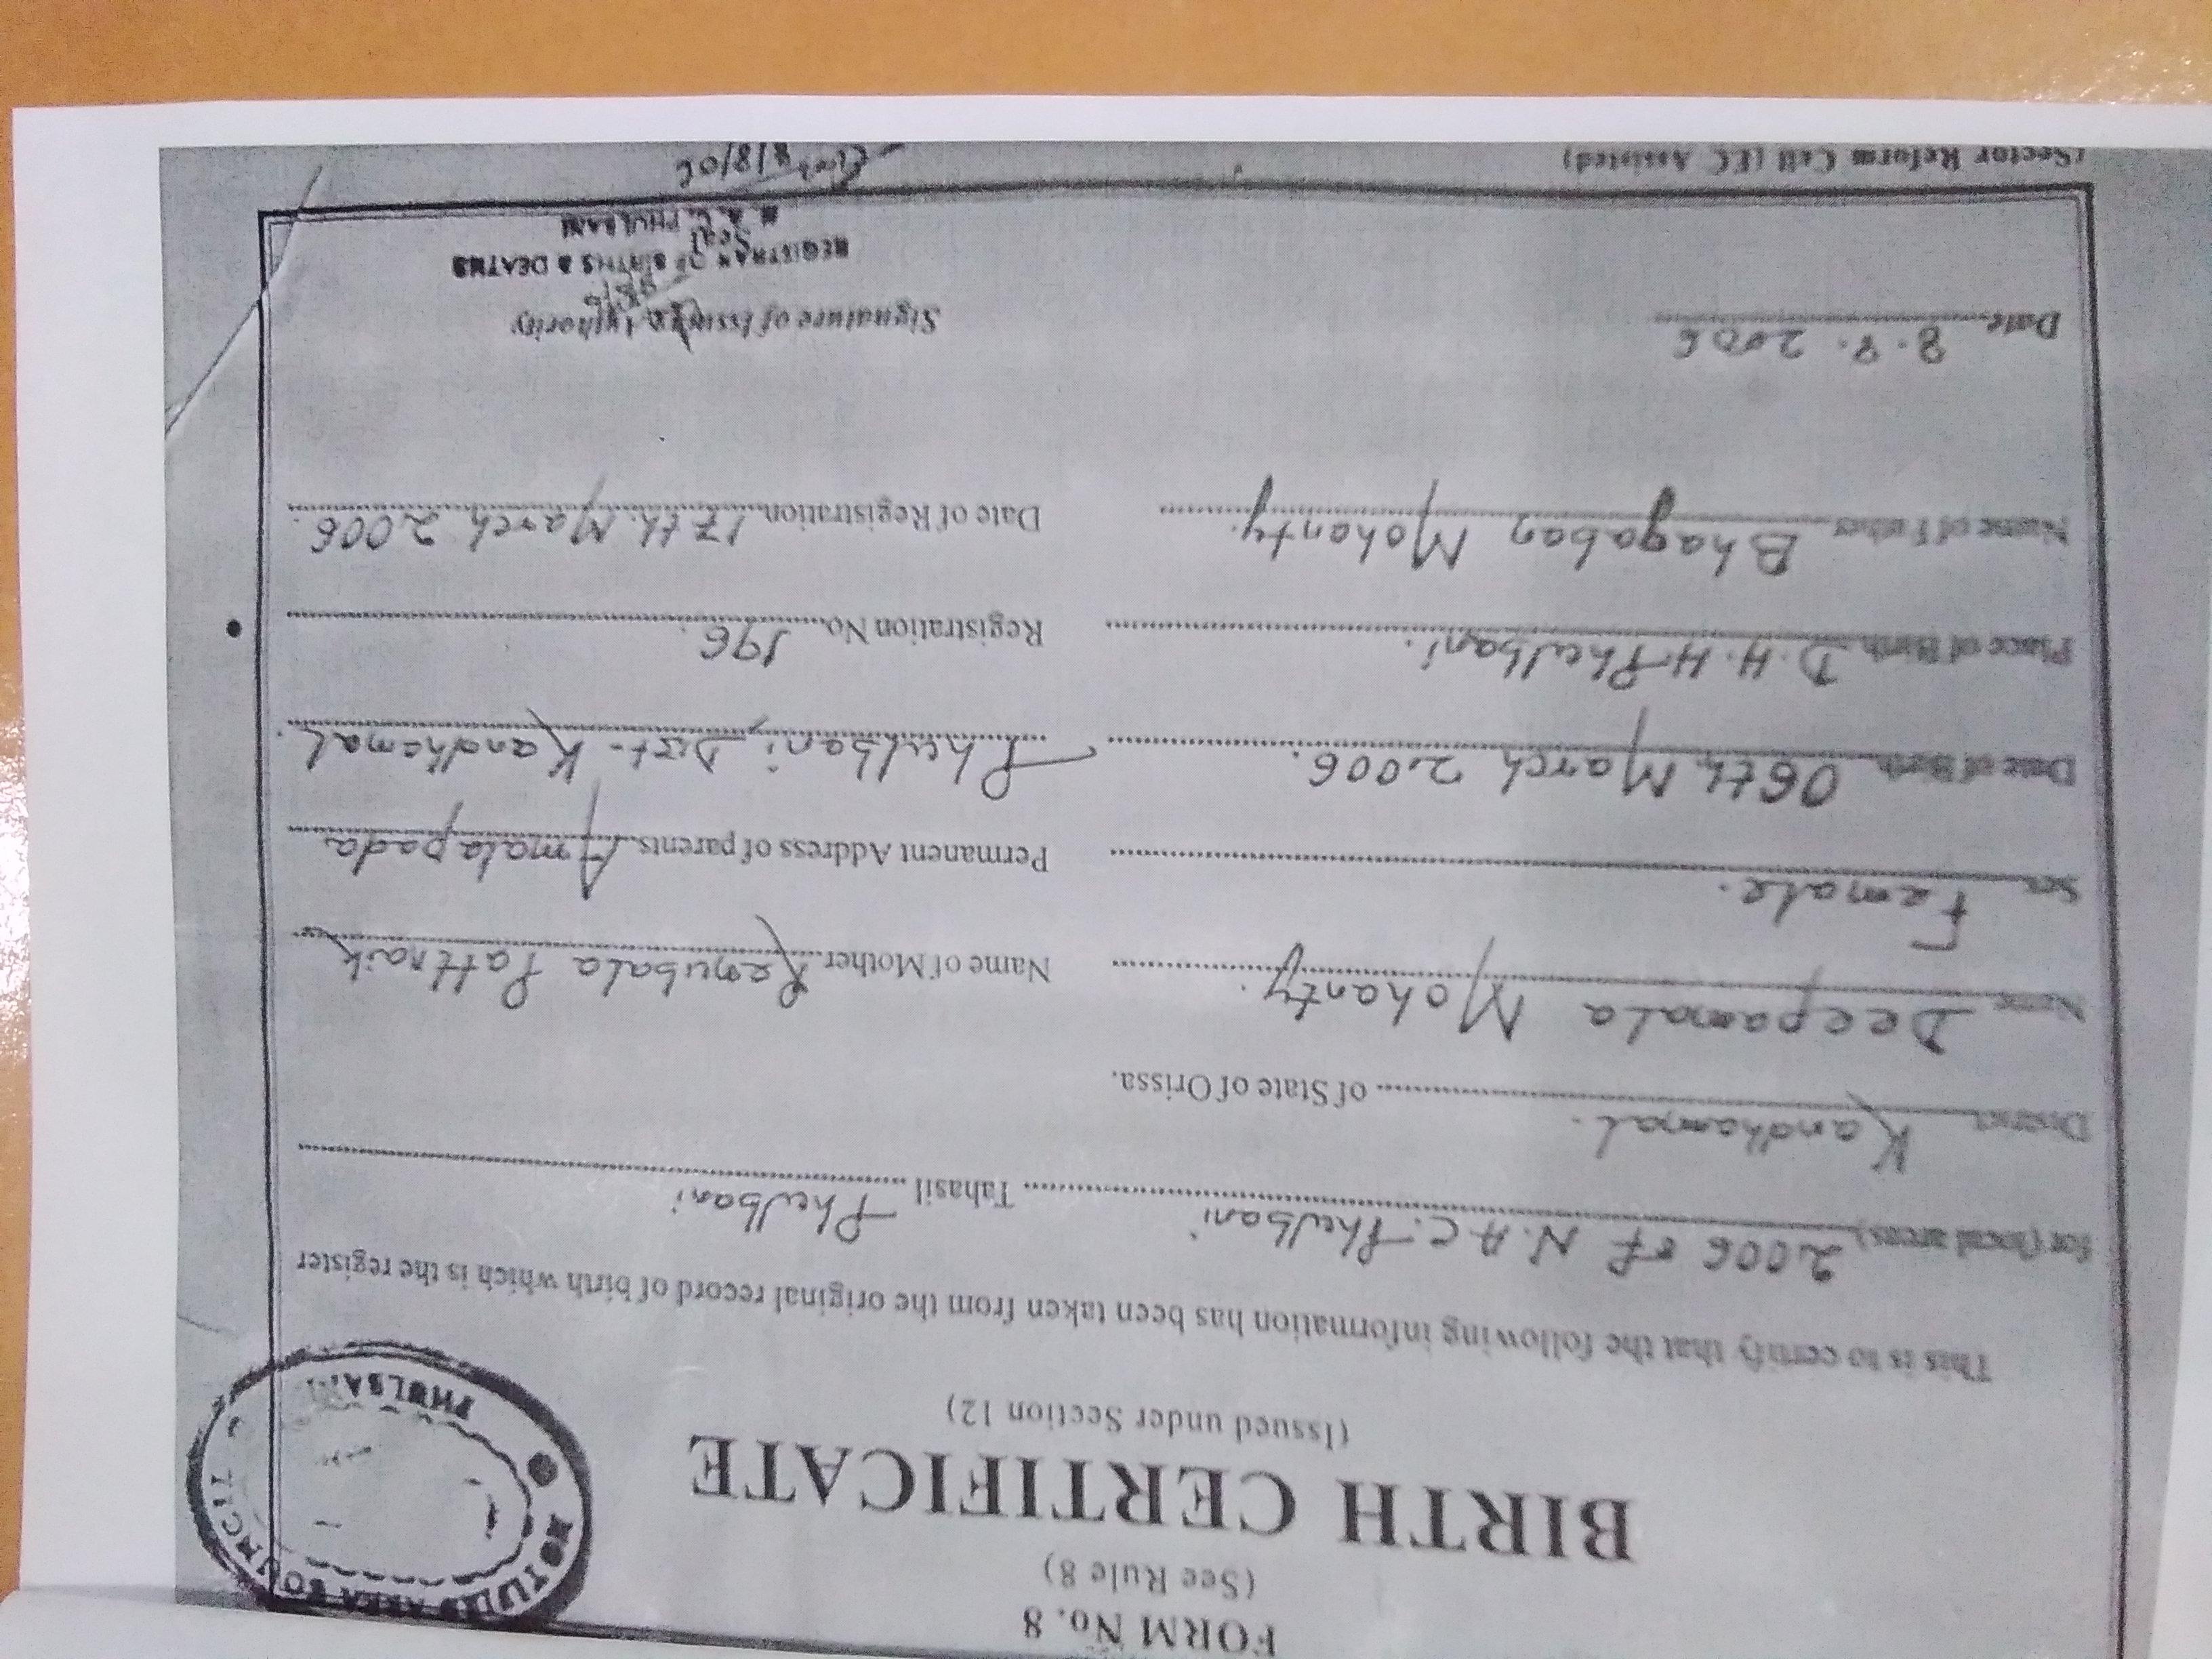 FORM No. 8
(See Rule 8)
BIRTH CERTIFICATE
(Issued under Section 12)
NOTIFIED AREA COUNCIL
PHULBANI
This is to certify that the following information has been taken from the original record of birth which is the register
for (local areas) 2006 of N.A.C. Phulbani Tahasil Phulbani
District Kandhamal. of State of Orissa.
Name Deepamala Mohanty. Name of Mother Renubala Pattnaik
Sex Female. Permanent Address of parents Amalapada
Date of Birth 06th March 2006. Phulbani, Dist- Kandhamal.
Place of Birth D.H.H. Phulbani. Registration No. 196.
Name of Father Bhagaban Mohanty. Date of Registration 17th March 2006.
Date 8.8.2006 Signature of Issuing Authority
REGISTRAR OF BIRTHS & DEATHS
Seal
N.A.C. PHULBANI
8/8/06
(Sector Reform Cell (EC Assisted)